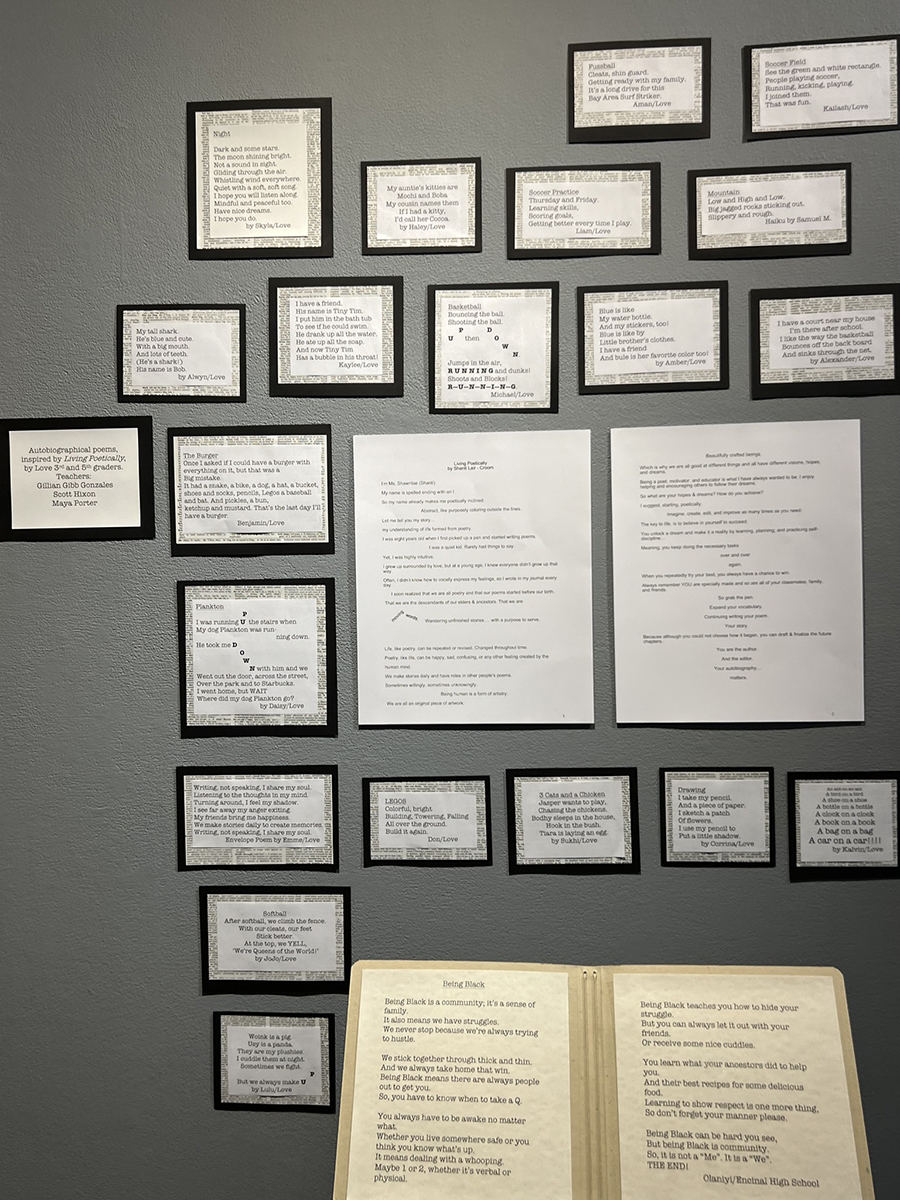 Fussball
Cleats, shin guard.
Getting ready with my family.
It's a long drive for this
Bay Area Surf Striker.
Aman/Love
Soccer Field
See the green and white rectangle.
People playing soccer,
Running, kicking, playing.
I joined them.
That was fun.
Kailash/Love
Night
Dark and some stars.
The moon shining bright.
Not a sound in sight.
Gliding through the air.
Whistling wind everywhere.
Quiet with a soft, soft song.
I hope you will listen along.
Mindful and peaceful too.
Have nice dreams.
I hope you do.
by Skyla/Love
My auntie's kitties are
Mochi and Boba
My cousin names them
If I had a kitty,
I'd call her Cocoa.
by Haley/Love
Soccer Practice
Thursday and Friday.
Learning skills,
Scoring goals,
Getting better every time I play.
Liam/Love
Mountain
Low and High and Low.
Big jagged rocks sticking out.
Slippery and rough.
Haiku by Samuel M.
My tall shark.
He's blue and cute.
With a big mouth.
And lots of teeth.
(He's a shark!)
His name is Bob.
by Alwyn/Love
I have a friend.
His name is Tiny Tim.
I put him in the bath tub
To see if he could swim.
He drank up all the water.
He ate up all the soap.
And now Tiny Tim
Has a bubble in his throat!
Kaylee/Love
Basketball
Bouncing the ball.
Shooting the ball.
P D
U then O
W
N
Jumps in the air,
RUNNING and dunks!
Shoots and Blocks!
R-U-N-N-I-N-G.
Michael/Love
Blue is like
My water bottle.
And my stickers, too!
Blue is like by
Little brother's clothes.
I have a friend
And bule is her favorite color too!
by Amber/Love
I have a court near my house
I'm there after school.
I like the way the basketball
Bounces off the back board
And sinks through the net.
by Alexander/Love
Autobiographical poems,
inspired by Living Poetically,
by Love 3rd and 5th graders.
Teachers:
Gillian Gibb Gonzales
Scott Hixon
Maya Porter
The Burger
Once I asked if I could have a burger with
everything on it, but that was a
Big mistake.
It had a snake, a bike, a dog, a hat, a bucket,
shoes and socks, pencils, Legos a baseball
and bat. And pickles, a bun,
ketchup and mustard. That's the last day I'll
have a burger.
Benjamin/Love
Living Poetically
by Shanti
My name is spelled ending with an I
So my name already makes me poetically inclined.
Abstract, like purposely coloring outside the lines.
Let me tell you my story…
my understanding of life formed from poetry.
I was eight years old when I first picked up a pen and started writing poems.
I was a quiet kid. Rarely had things to say
Yet, I was highly intuitive.
I grew up surrounded by love, but at a young age, I knew everyone didn't grow up that
way.
Often, I didn't know how to vocally express my feelings, so I wrote in my journal every
day.
I soon realized that we are all poetry and that our poems started before our birth.
That we are the descendants of our elders & ancestors. That we are
moving words
Wandering unfinished stories… with a purpose to serve.
Life, like poetry, can be repeated or revised. Changed throughout time.
Poetry, like life, can be happy, sad, confusing, or any other feeling created by the
human mind.
We make stories daily and have roles in other people's poems.
Sometimes willingly, sometimes unknowingly.
Being human is a form of artistry.
We are all an original piece of artwork.
1
Beautifully crafted beings,
Which is why we are all good at different things and all have different visions, hopes,
and dreams.
Being a poet, motivator, and educator is what I have always wanted to be. I enjoy
helping and encouraging others to follow their dreams.
So what are your hopes & dreams? How do you achieve?
I suggest, starting poetically.
Imagine, create, edit, and improve as many times as you need.
The key to life, is to believe in yourself to succeed.
You unlock a dream and make it a reality by learning, planning, and practicing self-
discipline…
Meaning, you keep doing the necessary tasks
over and over
again.
When you repeatedly try your best, you always have a chance to win.
Always remember YOU are specially made and so are all of your classmates, family,
and friends.
So grab the pen.
Expand your vocabulary.
Continue writing your poem.
Your story.
Because although you could not choose how it began, you can draft & finalize the future
chapters.
You are the author.
And the editor.
Your autobiography…
matters.
Plankton
P
I was running U the stairs when
My dog Plankton was run-
ning down.
He took me D
O
W
N with him and we
Went out the door, across the street,
Over the park and to Starbucks.
I went home, but WAIT
Where did my dog Plankton go?
by Daisy/Love
Writing, not speaking, I share my soul.
Listening to the thoughts in my mind.
Turning around, I feel my shadow.
I see far away my anger exiting.
My friends bring me happiness.
We make stories daily to create memories.
Writing, not speaking, I share my soul.
Envelope Poem by Emme/Love
LEGOS
Colorful, bright
Building, Towering, Falling
All over the ground.
Build it again.
Don/Love
3 Cats and a Chicken
Jasper wants to play,
Chasing the chickens.
Bodhy sleeps in the house,
Hook in the bush.
Tiara is laying an egg.
by Sukhi/Love
Drawing
I take my pencil.
And a piece of paper.
I sketch a patch
Of flowers.
I use my pencil to
Put a little shadow.
by Corrina/Love
A bird on a bird
A shoe on a shoe
A bottle on a bottle
A clock on a clock
A book on a book
A bag on a bag
A car on a car!!!!
by Kalvin/Love
Softball
After softball, we climb the fence.
With our cleats, our feet
Stick better.
At the top, we YELL,
"We're Queens of the World!"
by JoJo/Love
Woink is a pig.
Usy is a panda.
They are my plushies.
I cuddle them at night.
Sometimes we fight.
P
But we always make U
by Lulu/Love
Being Black
Being Black is a community; it's a sense of
family.
It also means we have struggles.
We never stop because we're always trying
to hustle.
We stick together through thick and thin.
And we always take home that win.
Being Black means there are always people
out to get you.
So, you have to know when to take a Q.
You always have to be awake no matter
what.
Whether you live somewhere safe or you
think you know what's up.
It means dealing with a whooping.
Maybe 1 or 2, whether it's verbal or
physical.
Being Black teaches you how to hide your
struggle.
But you can always let it out with your
friends.
Or receive some nice cuddles.
You learn what your ancestors did to help
you.
And their best recipes for some delicious
food.
Learning to show respect is one more thing,
So don't forget your manner please.
Being Black can be hard you see,
But being Black is community.
So, it is not a "Me". It is a "We".
THE END!
Olaniyi/Encinal High School